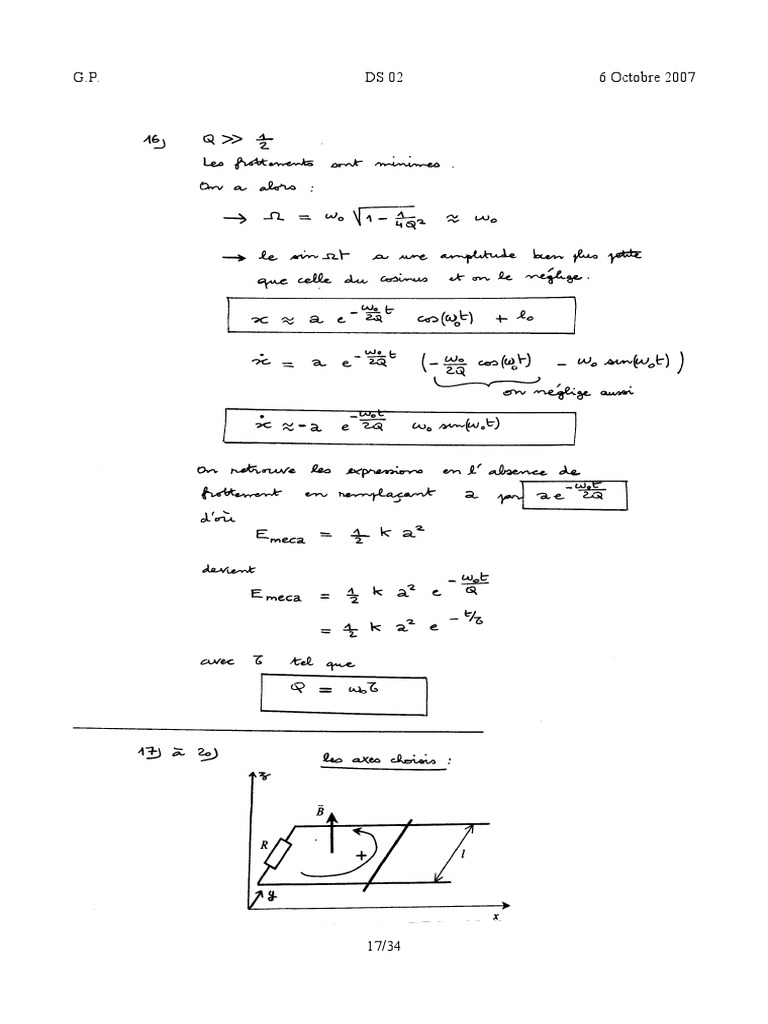 G.P. DS 02 6 Octobre 2007
16) Q >> 1/2
Les frottements sont minimes.
On a alors :
→ Ω = ω₀ √(1 - 1/4Q²) ≈ ω₀
→ le sin Ωt a une amplitude bien plus petite
que celle du cosinus et on le néglige.
x ≈ a e^(-ω₀t/2Q) cos(ω₀t) + l₀
ẋ = a e^(-ω₀t/2Q) (-ω₀/2Q cos(ω₀t) - ω₀ sin(ω₀t))
on néglige aussi
ẋ ≈ -a e^(-ω₀t/2Q) ω₀ sin(ω₀t)
On retrouve les expressions en l'absence de
frottement en remplaçant a par a e^(-ω₀t/2Q)
d'où
Emeca = 1/2 k a²
devient
Emeca = 1/2 k a² e^(-ω₀t/Q)
= 1/2 k a² e^(-t/τ)
avec τ tel que
Q = ω₀τ
17) à 20) les axes choisis :
z
B⃗
R
+
l
y
x
17/34